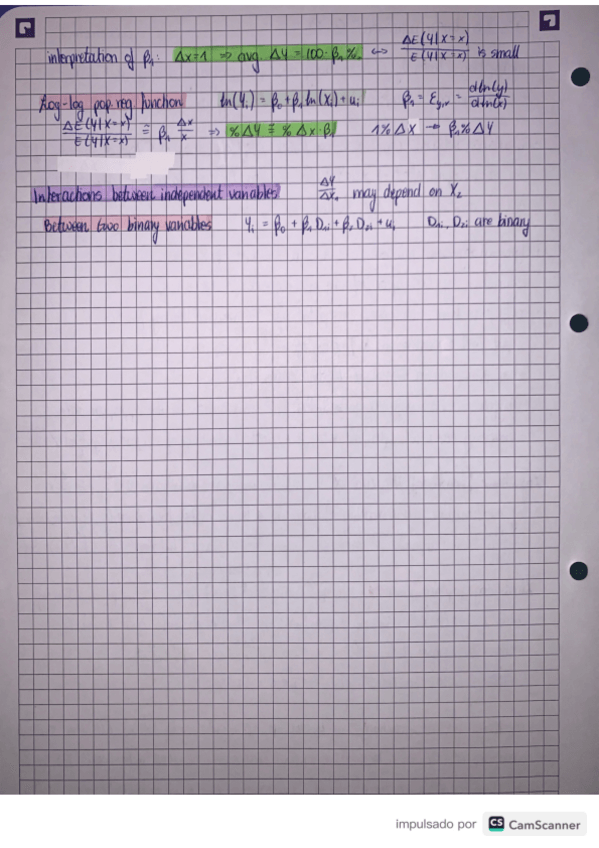 interpretation of β₁: Δx=1 ⇒ avg. ΔY = 100·β₁% ⇔ ΔE(Y|X=x)/E(Y|X=x) is small
Log-log pop. reg. function ln(Yᵢ) = β₀+β₁ln(Xᵢ)+uᵢ β₁ = Ɛy,x = dln(y)/dln(x)
ΔE(Y|X=x)/E(Y|X=x) ≅ β₁ Δx/x ⇒ %ΔY ≅ %Δx·β₁ 1%ΔX → β₁%ΔY
Interactions between independent variables ΔY/ΔX₁ may depend on X₂
Between two binary variables Yᵢ = β₀ + β₁D₁ᵢ + β₂D₂ᵢ + uᵢ D₁ᵢ, D₂ᵢ are binary
impulsado por CS CamScanner